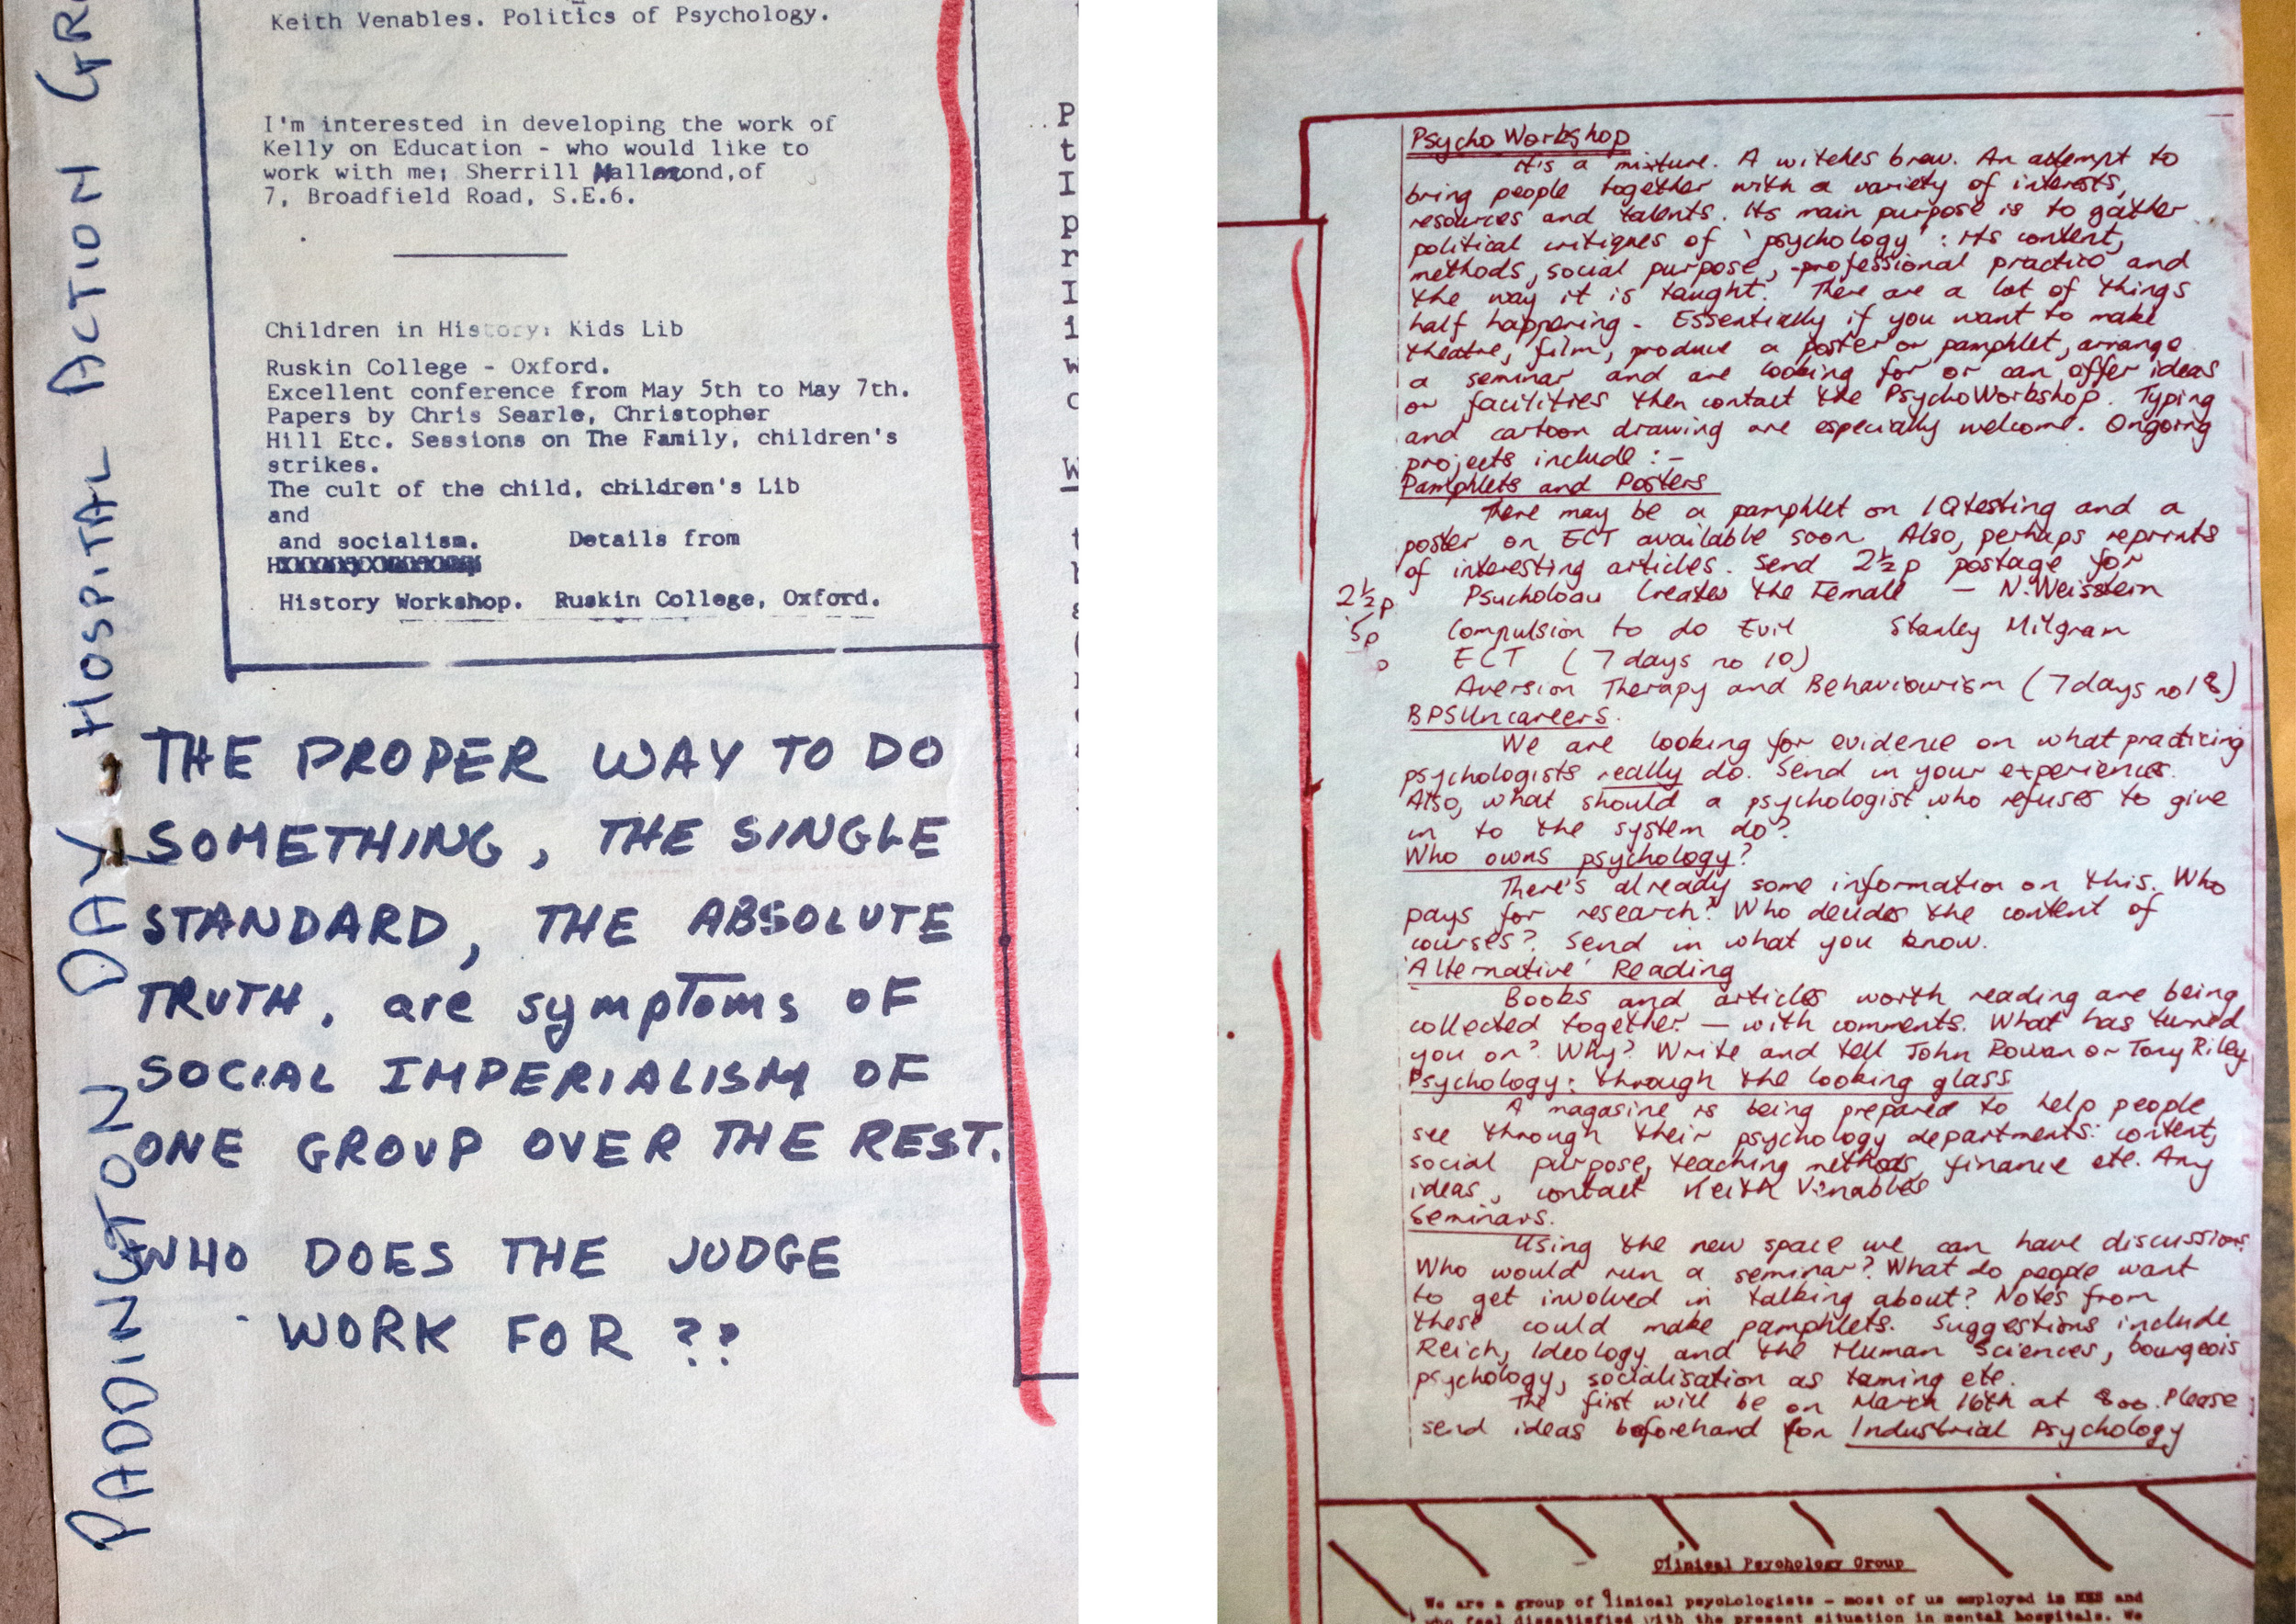 Keith Venables. Politics of Psychology.
I'm interested in developing the work of
Kelly on Education - who would like to
work with me; Sherrill Hallmond,of
7, Broadfield Road, S.E.6.
Children in History: Kids Lib
Ruskin College - Oxford.
Excellent conference from May 5th to May 7th.
Papers by Chris Searle, Christopher
Hill Etc. Sessions on The Family, children's
strikes.
The cult of the child, children's Lib
and
and socialism. Details from
History Workshop. Ruskin College, Oxford.
THE PROPER WAY TO DO
SOMETHING, THE SINGLE
STANDARD, THE ABSOLUTE
TRUTH, are symptoms OF
SOCIAL IMPERIALISM OF
ONE GROUP OVER THE REST.
WHO DOES THE JUDGE
WORK FOR ??
PADDINGTON DAY HOSPITAL ACTION GR
Psycho Workshop
Its a mixture. A witches brew. An attempt to
bring people together with a variety of interests,
resources and talents. Its main purpose is to gather
political critiques of 'psychology': its content,
methods, social purpose, professional practice and
the way it is taught. There are a lot of things
half happening - Essentially if you want to make
theatre, film, produce a poster or pamphlet, arrange
a seminar and are looking for or can offer ideas
or facilities then contact the PsychoWorkshop. Typing
and cartoon drawing are especially welcome. Ongoing
projects include :-
Pamphlets and Posters
There may be a pamphlet on IQ testing and a
poster on ECT available soon. Also, perhaps reprints
of interesting articles. Send 2½p postage for
2½p Psychology Creates the Female - N. Weisstein
5p Compulsion to do Evil Stanley Milgram
p ECT (7 days no 10)
Aversion Therapy and Behaviourism (7 days no 18)
BPS Uncareers.
We are looking for evidence on what practicing
psychologists really do. Send in your experiences.
Also, what should a psychologist who refuses to give
in to the system do?
Who owns psychology?
There's already some information on this. Who
pays for research? Who decides the content of
courses? Send in what you know.
'Alternative' Reading
Books and articles worth reading are being
collected together - with comments. What has turned
you on? Why? Write and tell John Rowan or Tony Riley
Psychology: through the looking glass
A magasine is being prepared to help people
see through their psychology departments: content,
social purpose, teaching methods, finance etc. Any
ideas, contact Keith Venables
Seminars.
Using the new space we can have discussions.
Who would run a seminar? What do people want
to get involved in talking about? Notes from
these could make pamphlets. Suggestions include
Reich, Ideology and the Human Sciences, bourgeois
psychology, socialisation as taming etc.
The first will be on March 16th at 8.00. Please
send ideas beforehand for Industrial Psychology
Clinical Psychology Group
We are a group of linical psychologists - most of us employed in NHS and
who feel dissatisfied with the present situation in mental hospitals. We